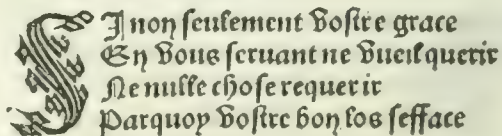 SInon seulement vostre grace
En vous seruant ne vueil querir
Ne nulle chose requerir
Parquoy vostre bon los sefface